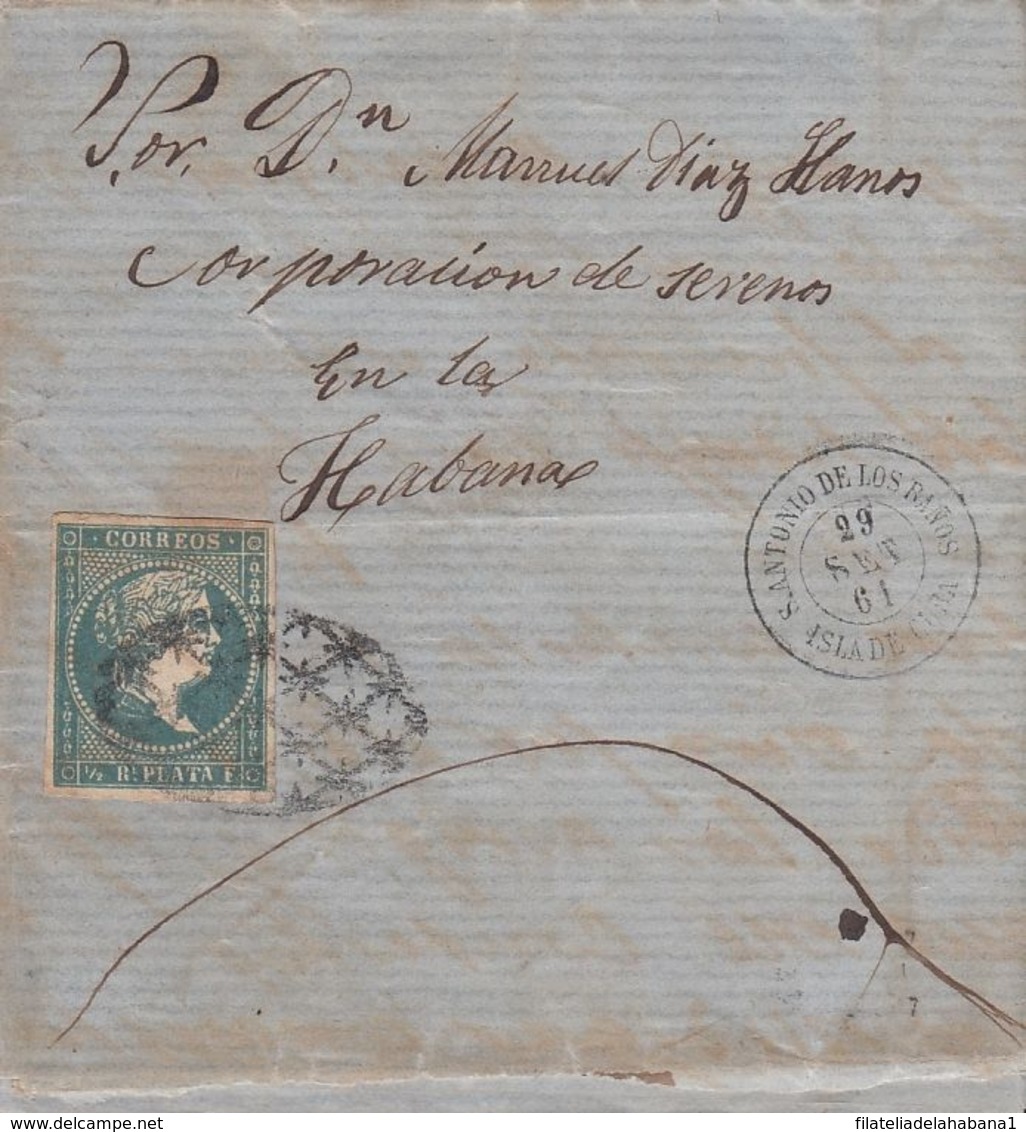 Por. Dn Manuel Diaz Llanos
Corporacion de serenos
En la
Habana
S. ANTONIO DE LOS BAÑOS
29
SET
61
ISLA DE CUBA
CORREOS
½ Rl. PLATA F.
7
filateliadelahabana1